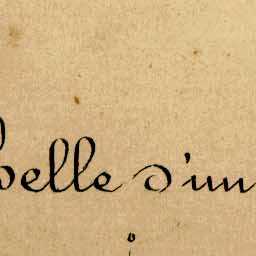 belle d'un